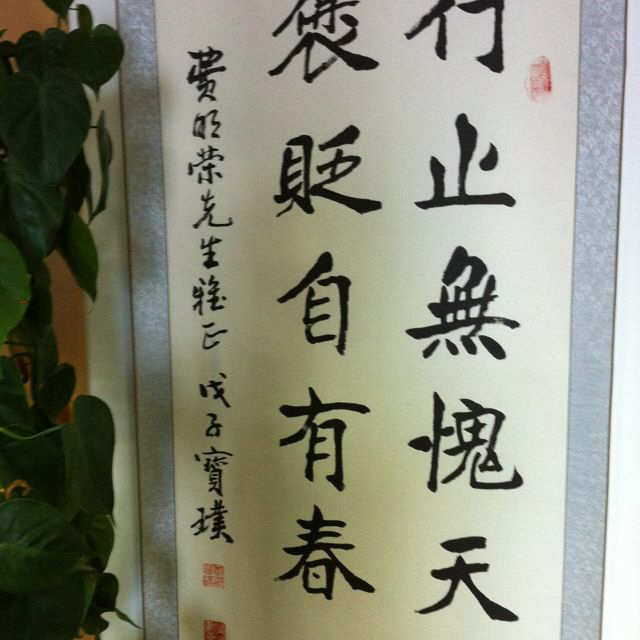 行止無愧天
褒貶自有春
費明榮先生雅正 戊子寶璞